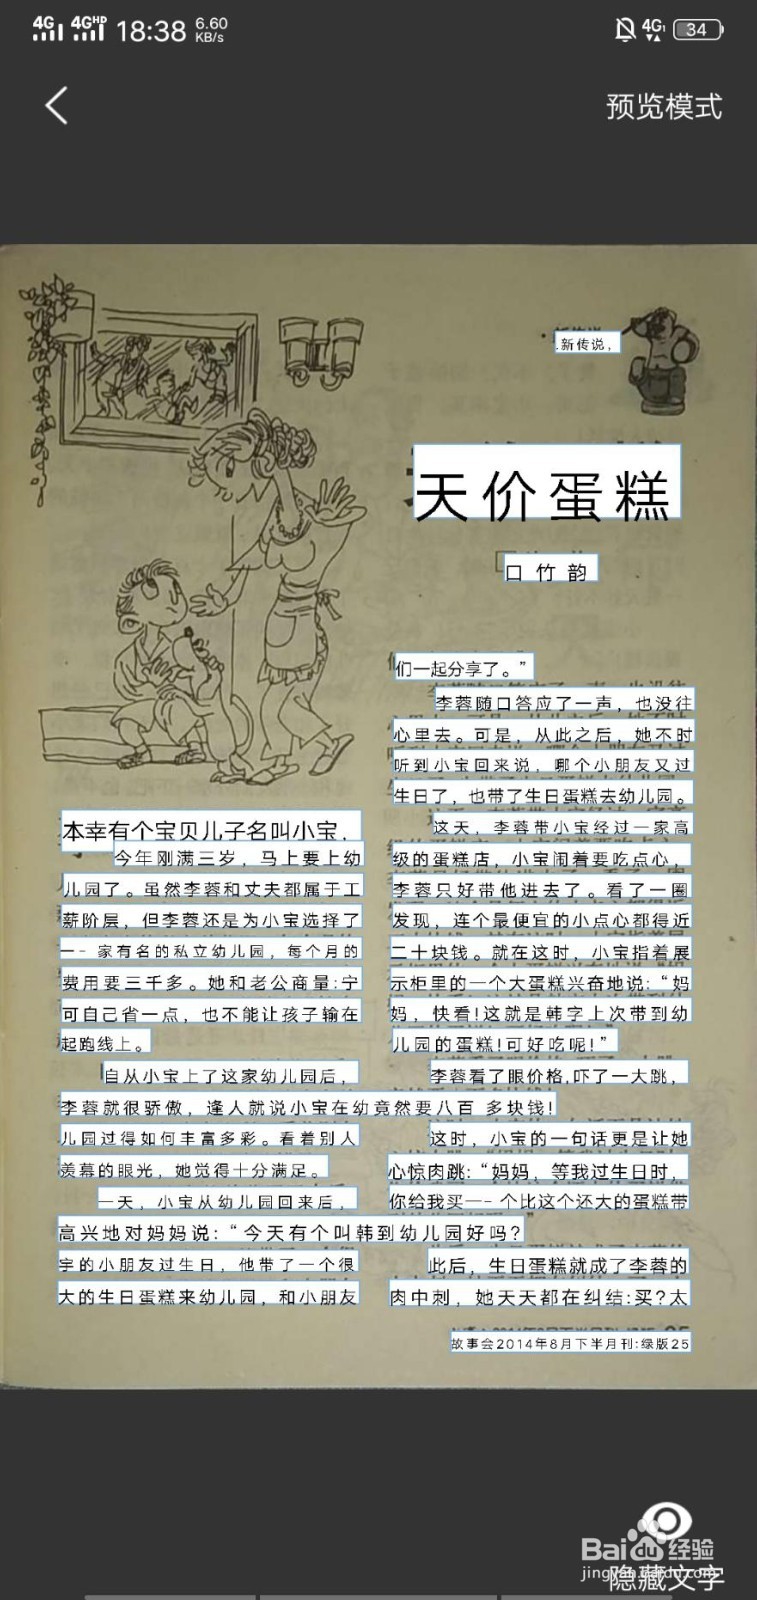 4G 4GHD 18:38 6.60 KB/s 4G 34
预览模式
.新传说,
天价蛋糕
口竹韵
本幸有个宝贝儿子名叫小宝,
今年刚满三岁，马上要上幼
儿园了。虽然李蓉和丈夫都属于工
薪阶层，但李蓉还是为小宝选择了
一-家有名的私立幼儿园，每个月的
费用要三千多。她和老公商量:宁
可自己省一点，也不能让孩子输在
起跑线上。
自从小宝上了这家幼儿园后，
李蓉就很骄傲，逢人就说小宝在幼竟然要八百 多块钱!
儿园过得如何丰富多彩。看着别人
羡幕的眼光，她觉得十分满足。
一天，小宝从幼儿园回来后，
高兴地对妈妈说:“今天有个叫韩到幼儿园好吗?
宇的小朋友过生日，他带了一个很
大的生日蛋糕来幼儿园，和小朋友
们一起分享了。”
李蓉随口答应了一声，也没往
心里去。可是，从此之后，她不时
听到小宝回来说，哪个小朋友又过
生日了，也带了生日蛋糕去幼儿园。
这天，李蓉带小宝经过一家高
级的蛋糕店，小宝闹着要吃点心，
李蓉只好带他进去了。看了一圈
发现，连个最便宜的小点心都得近
二十块钱。就在这时，小宝指着展
示柜里的一个大蛋糕兴奋地说:“妈
妈，快看!这就是韩字上次带到幼
儿园的蛋糕!可好吃呢!”
李蓉看了眼价格,吓了一大跳，
这时，小宝的一句话更是让她
心惊肉跳:“妈妈，等我过生日时，
你给我买一-个比这个还大的蛋糕带
此后，生日蛋糕就成了李蓉的
肉中刺，她天天都在纠结:买?太
故事会2014年8月下半月刊:绿版25
Baidu经验
jingyan.baidu.com
隐藏文字